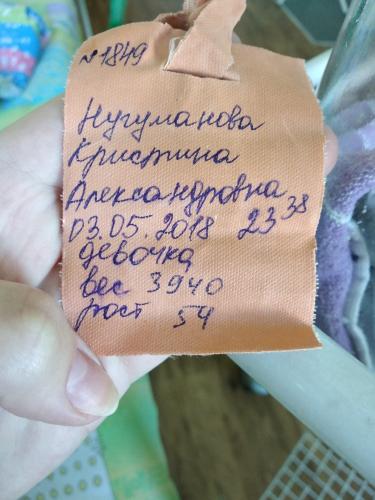 №1849
Нугуманова
Кристина
Александровна
03.05.2018 23 38
девочка
вес 3940
рост 54